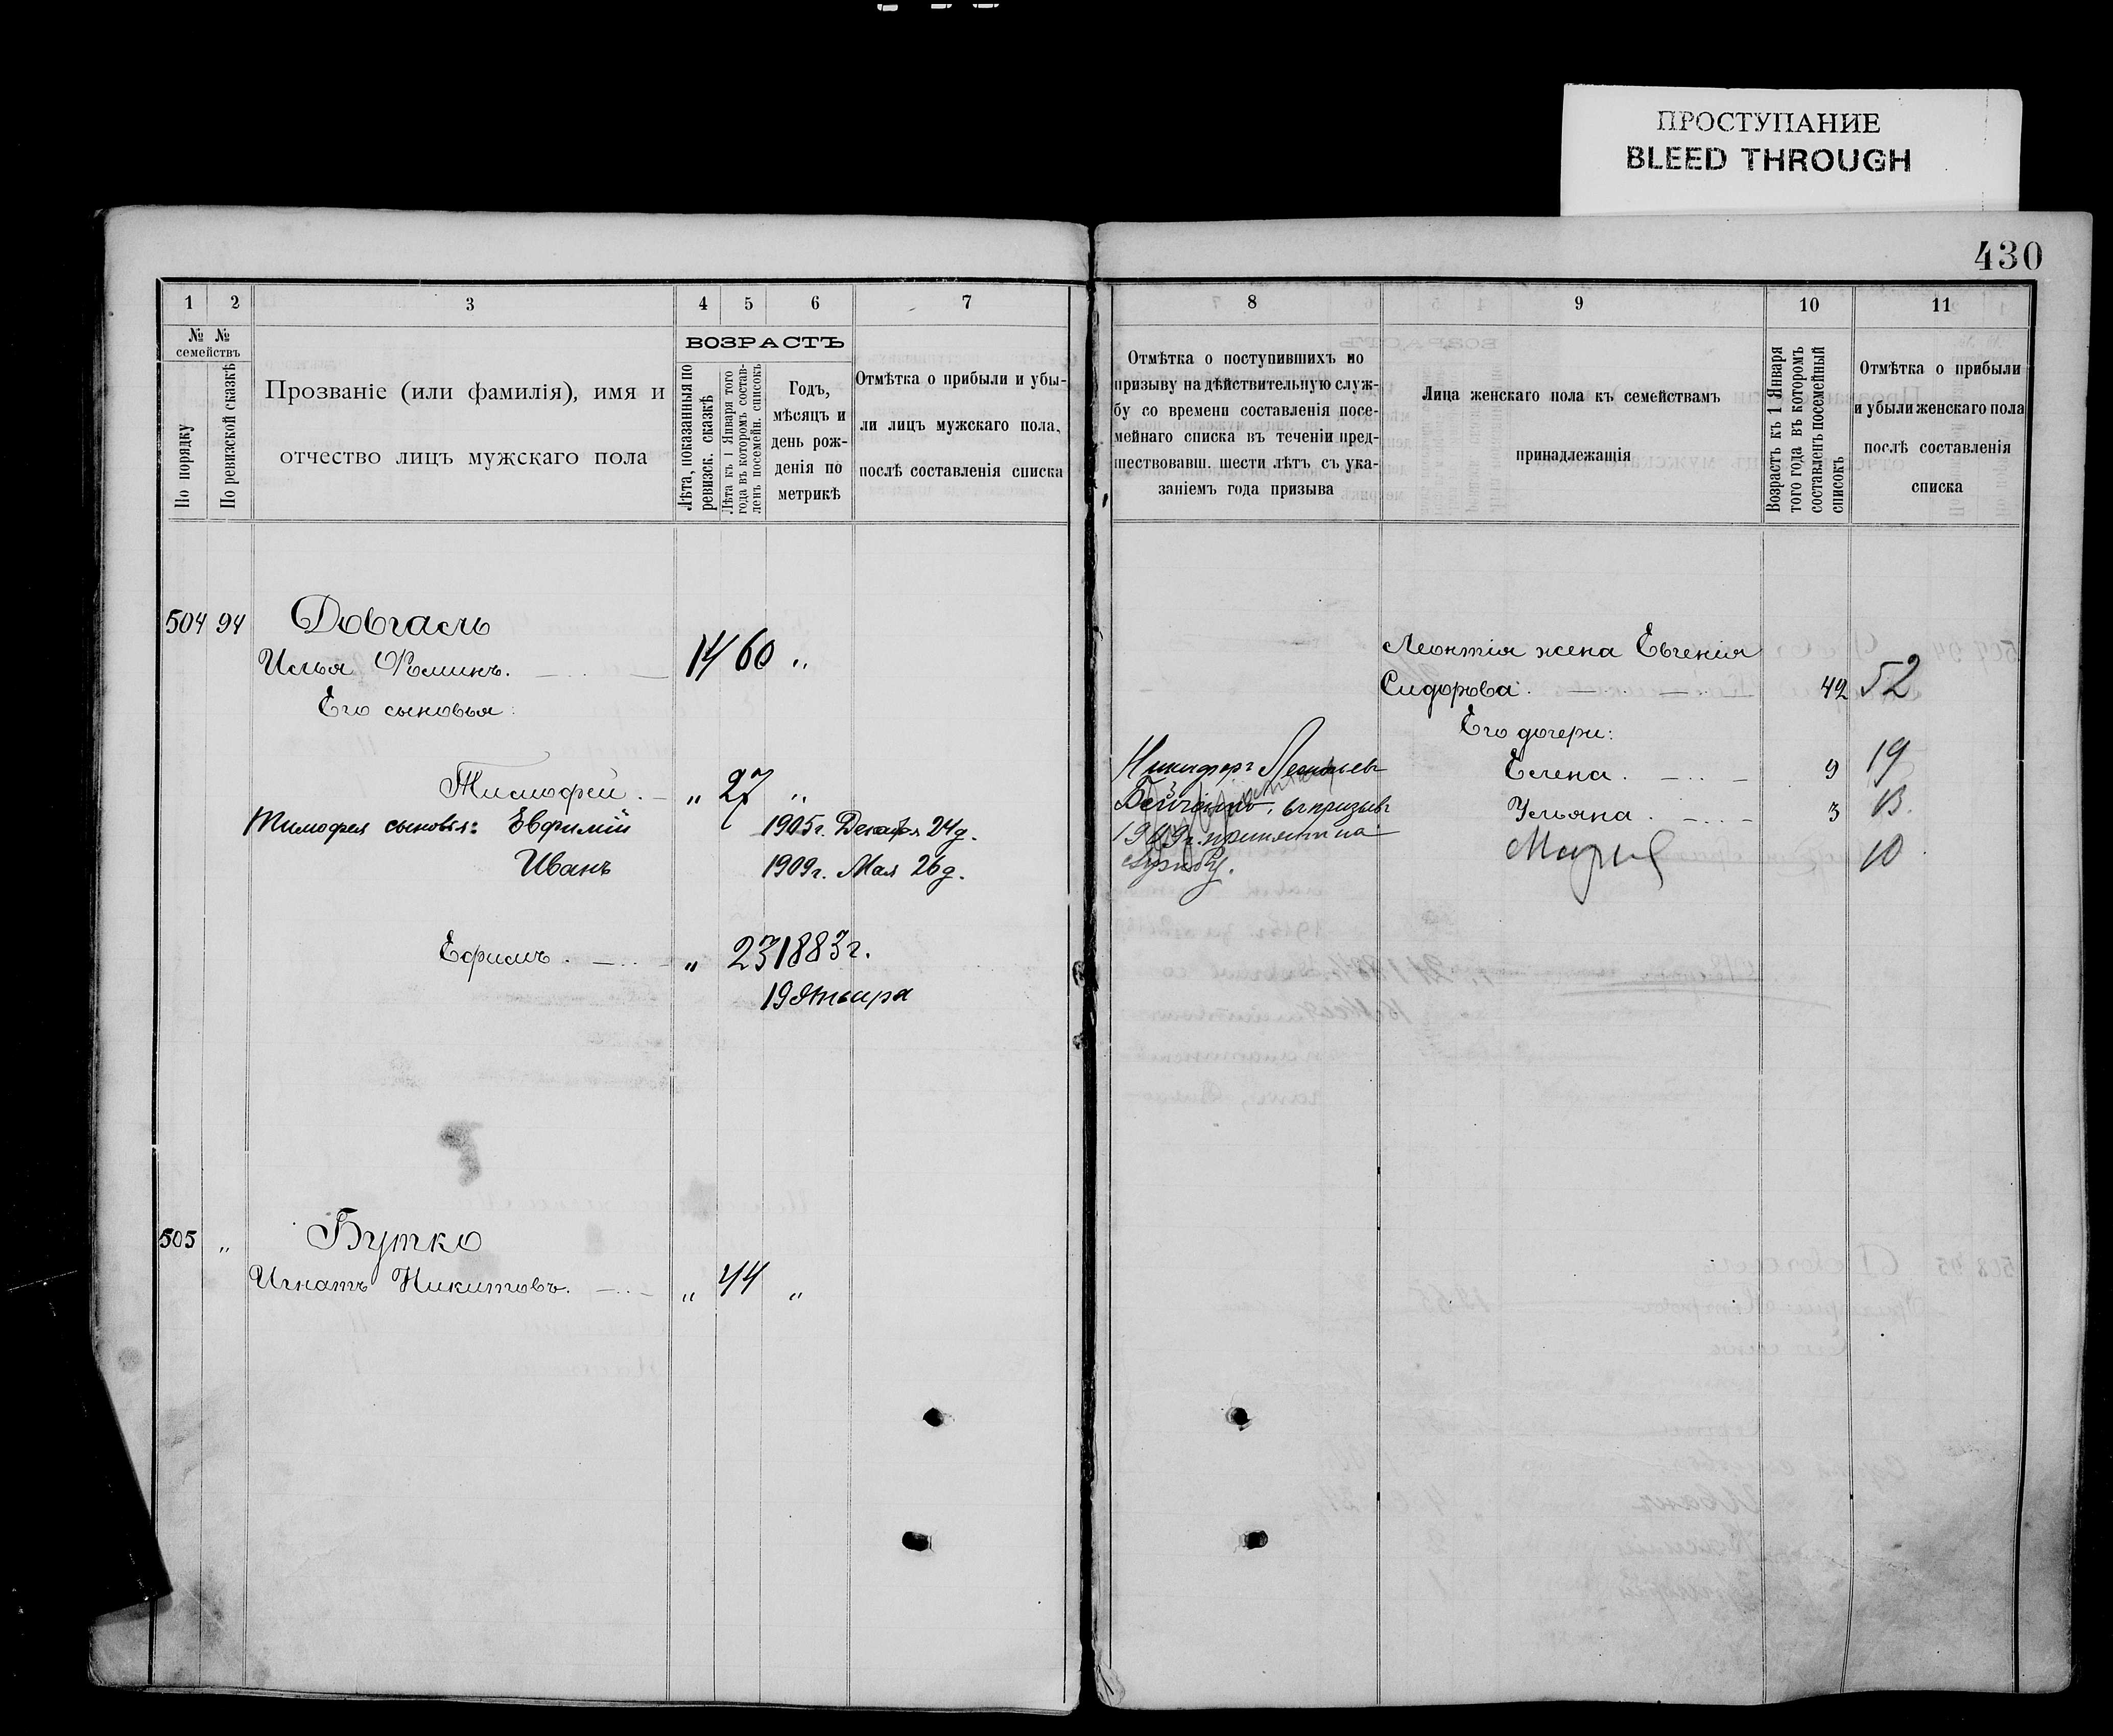 ПРОСТУПАНИЕ
BLEED THROUGH
430
1 2 3 4 5 6 7
№ №
семействъ
По порядку
По ревизской сказкѣ
Прозваніе (или фамилія), имя и
отчество лицъ мужскаго пола
ВОЗРАСТЪ
Лѣта, показанныя по
ревизск. сказкѣ
Лѣта къ 1 Января того
года въ которомъ состав-
ленъ посемейн. списокъ
Годъ,
мѣсяцъ и
день рож-
денія по
метрикѣ
Отмѣтка о прибыли и убы-
ли лицъ мужскаго пола,
послѣ составленія списка
504 94 Довгаль
Илья Ѳоминъ. 14 60 "
Его сыновья:
Тимофей. " 27 "
Тимофея сыновья: Евфимій 1905 г. Декабря 24 д.
Иванъ 1909 г. Мая 26 д.
Ефимъ. " 23 1883 г.
19 Января
505 " Бутко
Игнатъ Никитовъ. " 44 "
8 9 10 11
Отмѣтка о поступившихъ по
призыву на дѣйствительную служ-
бу со времени составленія посе-
мейнаго списка въ теченіи пред-
шествовавш. шести лѣтъ съ ука-
заніемъ года призыва
Лица женскаго пола къ семействамъ
принадлежащія
Возрастъ къ 1 Января
того года въ которомъ
составленъ посемейный
списокъ
Отмѣтка о прибыли
и убыли женскаго пола
послѣ составленія
списка
Леонтія жена Евгенія
Сидорова. 42 52
Его дочери:
Елена. 9 19
Ульяна. 3 13.
Марія 10
Никифоръ Леонтьевъ
въ призывъ
1909 г. принятъ на
службу.